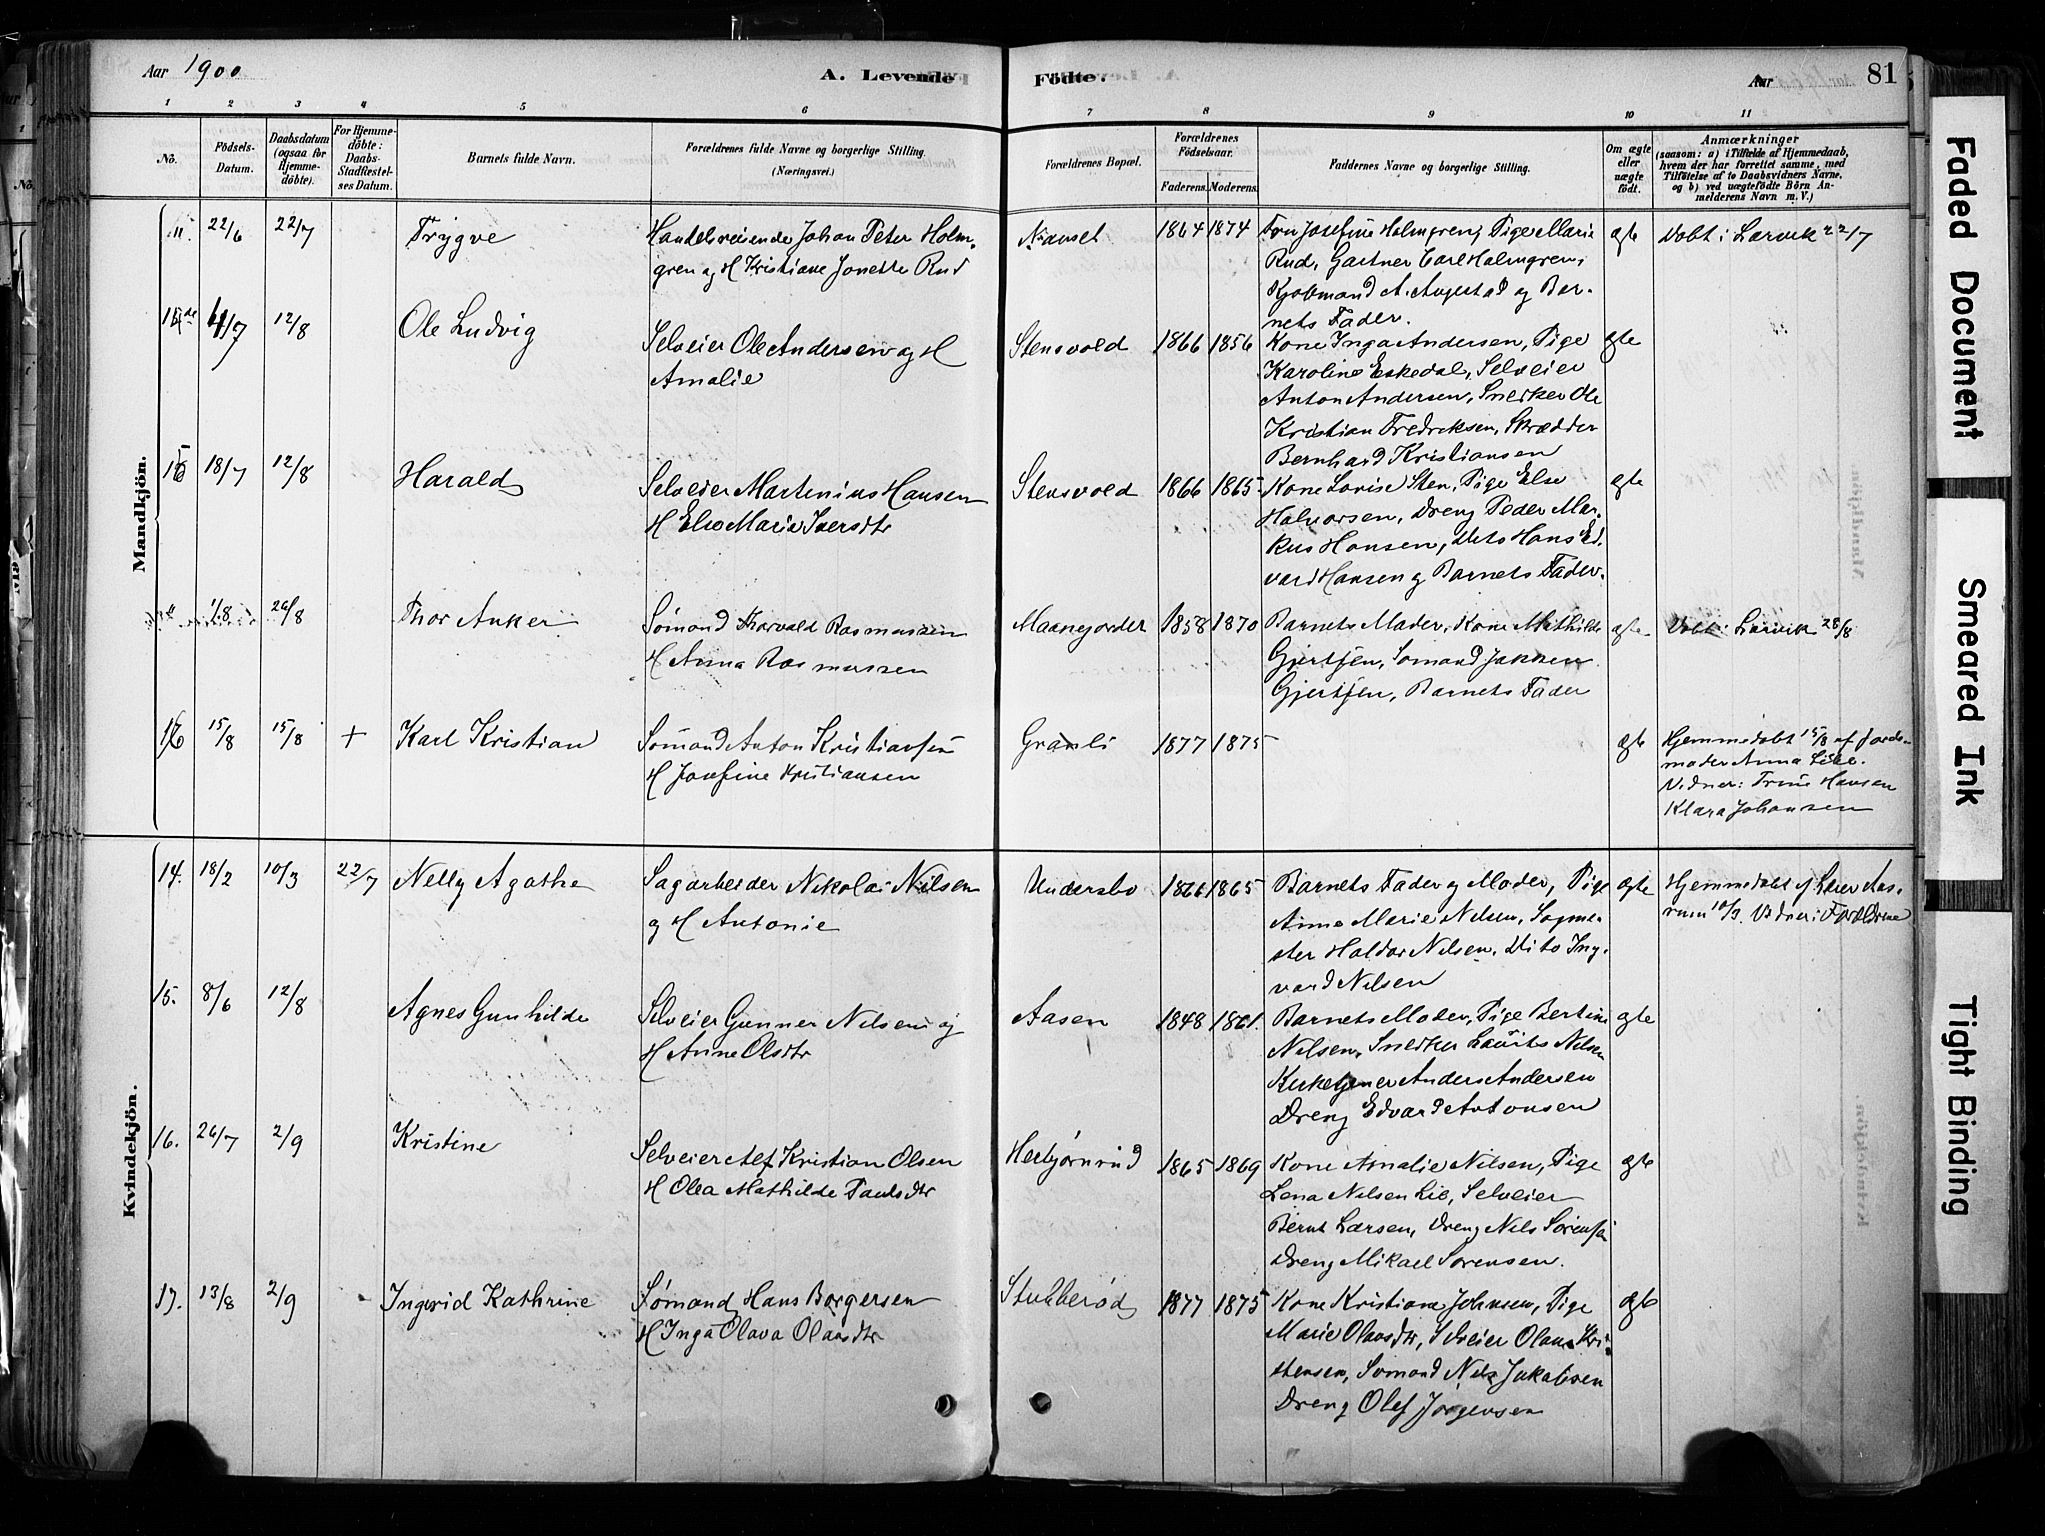 Aar 1900
A. Levende Födte.
Aar
81
1 2 3 4 5 6 7 8 9 10 11
No.
Födsels-Datum.
Daabsdatum (ogsaa for Hjemme-döbte).
For Hjemme-döbte: Daabs-Stadfæstel-ses Datum.
Barnets fulde Navn.
Forældrenes fulde Navne og borgerlige Stilling.
(Næringsvei.)
Forældrenes Bopæl.
Forældrenes Födselsaar.
Faderens. Moderens.
Faddernes Navne og borgerlige Stilling.
Om ægte eller uægte födt.
Anmærkninger
(saasom: a) i Tilfælde af Hjemmedaab,
hvem der har forrettet samme, med
Tilföielse af to Daabsvidners Navne,
og b) ved uægtefödte Börn An-
melderens Navn m. V.)
Mandkjön.
" 22/6 22/7 Trygve
Handelsreisende Johan Peter Holm-
gren og H Kristiane Jonette Rud
Nanset 1864 1874
Fru Josefine Holmgren, Pige Marie
Rud, Gartner Carl Holmgren,
Kjøbmand A. Augestad og Bar-
nets Fader.
ægte Døbt i Larvik 22/7
14 4/7 12/8 Ole Ludvig
Selveier Ole Andersen og H
Amalie
Stensvold 1866 1856
Kone Inga Andersen, Pige
Karoline Eskedal, Selveier
Anton Andersen, Snedker Ole
Kristian Fredriksen, Skrædder
Bernhard Kristiansen
ægte
15 18/7 12/8 Harald
Selveier Martinius Hansen
H Else Marie Iversdtr
Stensvold 1866 1865
Kone Lovise Sten, Pige Else
Halvorsen, Dreng Peder Mar-
kus Hansen, dito Hans Ed-
vard Hansen og Barnets Fader.
ægte
" 1/8 26/8 Thor Anker
Sømand Thorvald Rasmussen
H Anna Rasmussen
Maanejordet 1858 1870
Barnets Moder, Kone Mathilde
Gjertsen, Sømand Jakken
Gjertsen, Barnets Fader
ægte Døbt i Larvik 28/8
16 15/8 15/8 + Karl Kristian
Sømand Anton Kristiansen
H Josefine Kristiansen
Granli 1877 1875
ægte
Hjemmedøbt 15/8 af Jorde-
moder Anna Lie.
Vidner: Trine Hansen
Klara Johansen
Kvindekjön.
14. 18/2 10/3 22/7 Nelly Agathe
Sagarbeider Nikolai Nilsen
og H Antonie
Undersbo 1866 1865
Barnets Fader og Moder, Pige
Anne Marie Nilsen, Sagme-
ster Haldor Nilsen, Dito Ing-
vard Nilsen
ægte
Hjemmedøbt af Lærer Aas-
rum 10/3. Vidner: Forældrene
15. 8/6 12/8 Agnes Gunhilde
Selveier Gunner Nilsen og
H Anne Olsdtr
Aasen 1848 1861.
Barnets Moder, Pige Bertine
Nilsen, Snedker Laurits Nilsen
Kirketjener Anders Andersen
Dreng Edvard Antonsen
ægte
16. 26/7 2/9 Kristine
Selveier Alf Kristian Olsen
H Olea Mathilde Paulsdtr
Herbjørnrud 1865 1869
Kone Amalie Nilsen, Pige
Lena Nilsen Lie, Selveier
Bernt Larsen, Dreng Nils Sørensen
Dreng Mikael Sørensen.
ægte
17. 13/8 2/9 Ingerid Kathrine
Sømand Hans Borgersen
H Inga Olava Olausdtr
Stubberød 1877 1875
Kone Kristiane Johnsen, Pige
Marie Olausdtr, Selveier Olaus Kri-
stensen, Sømand Nils Jakobsen
Dreng Olef Jørgensen
ægte
Faded Document
Smeared Ink
Tight Binding